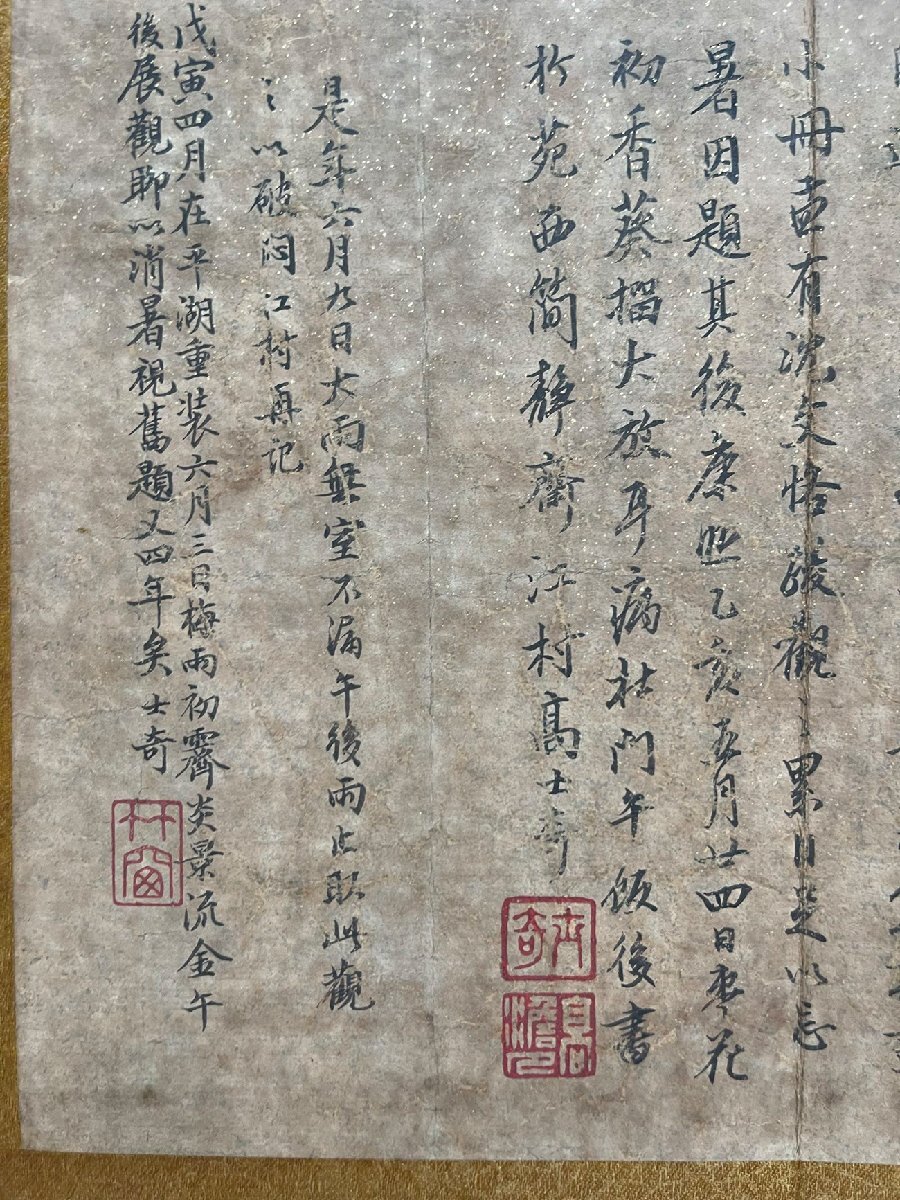 小冊亦有沈文恪跋觀之累日足以忘
暑因題其後康熙乙亥五月廿四日棗花
初香葵榴大放耳病杜門午飯後書
於苑西簡靜齋江村高士奇
是年六月九日大雨無室不漏午後雨止取此觀
之以破悶江村再記
戊寅四月在平湖重装六月三日梅雨初霽炎景流金午
後展觀聊以消暑視舊題又四年矣士奇
士奇
竹窗